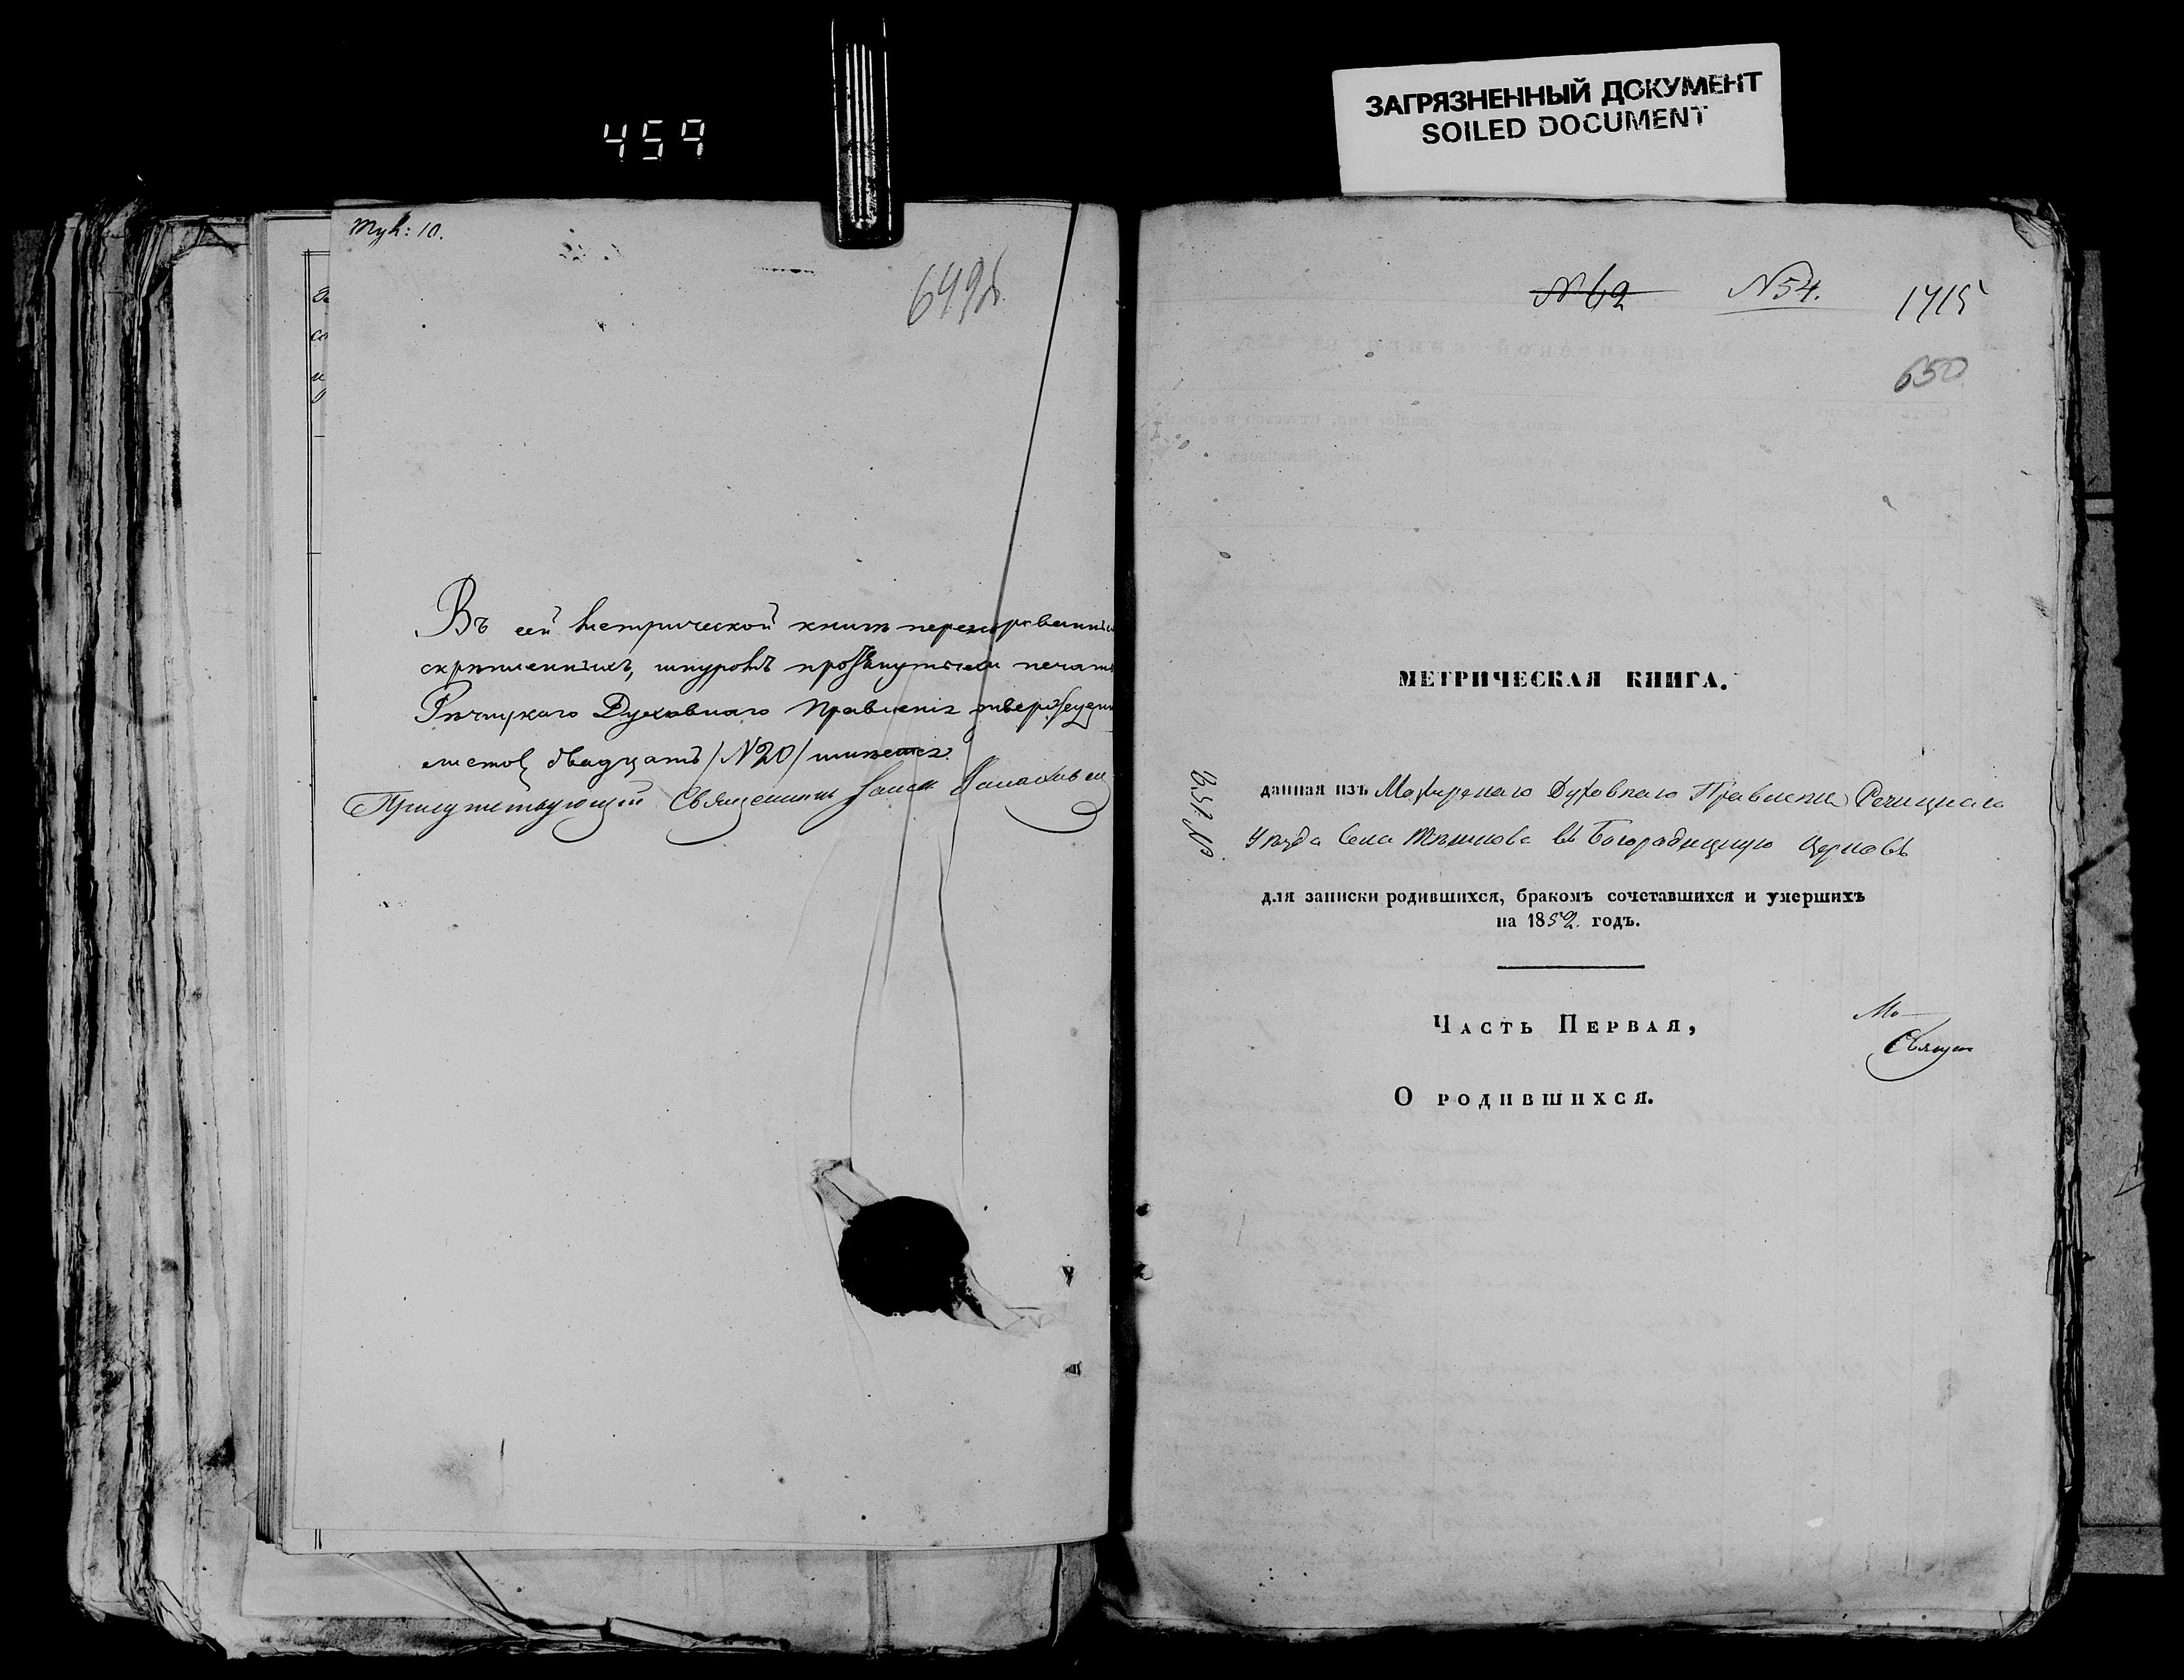 459
ЗАГРЯЗНЕННЫЙ ДОКУМЕНТ
SOILED DOCUMENT
Въ сей Метрической книгѣ
скрѣпленныхъ, шнуромъ
Рѣчицкаго Духовнаго Правленія
листовъ двадцать /№20/
Присутствующій Священникъ
№ 62 № 54. 1715
650
МЕТРИЧЕСКАЯ КНИГА.
данная изъ Мозырскаго Духовнаго Правленія Речицкаго
Уѣзда Села въ Богородицкую Церковь
для записки родившихся, бракомъ сочетавшихся и умершихъ
на 1852. годъ.
Часть Первая,
О родившихся.
Мо-
Священ